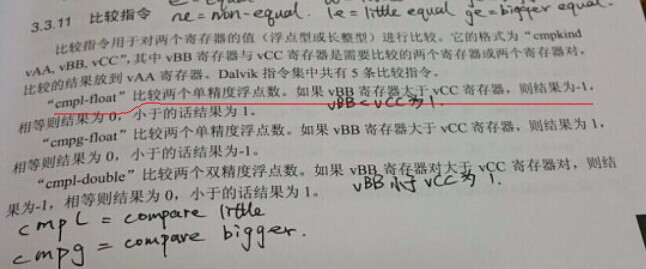 ne = non-equal. le = little equal ge = bigger equal.
3.3.11 比较指令
比较指令用于对两个寄存器的值（浮点型或长整型）进行比较。它的格式为“cmpkind
vAA, vBB, vCC”,其中 vBB 寄存器与 vCC 寄存器是需要比较的两个寄存器或两个寄存器对，
比较的结果放到 vAA 寄存器。Dalvik 指令集中共有 5 条比较指令。
“cmpl-float”比较两个单精度浮点数。如果 vBB 寄存器大于 vCC 寄存器，则结果为-1，
相等则结果为 0，小于的话结果为 1。
vBB < vCC 为 1.
“cmpg-float”比较两个单精度浮点数。如果 vBB 寄存器大于 vCC 寄存器，则结果为 1，
相等则结果为 0，小于的话结果为-1。
“cmpl-double”比较两个双精度浮点数。如果 vBB 寄存器对大于 vCC 寄存器对，则结
果为-1，相等则结果为 0，小于的话结果为 1。
vBB 小于 vCC 为 1.
cmpl = compare little
cmpg = compare bigger.